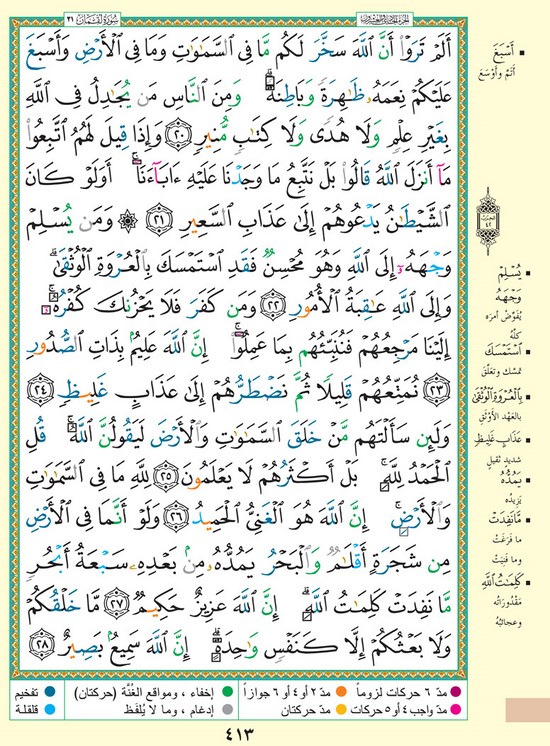 سُورَةُ لُقْمَان ٣١
الجزء الحادي والعشرون
أَلَمْ تَرَوْا۟ أَنَّ ٱللَّهَ سَخَّرَ لَكُم مَّا فِى ٱلسَّمَـٰوَٰتِ وَمَا فِى ٱلْأَرْضِ وَأَسْبَغَ
عَلَيْكُمْ نِعَمَهُۥ ظَـٰهِرَةً وَبَاطِنَةً ۗ وَمِنَ ٱلنَّاسِ مَن يُجَـٰدِلُ فِى ٱللَّهِ
بِغَيْرِ عِلْمٍ وَلَا هُدًى وَلَا كِتَـٰبٍ مُّنِيرٍ ﴿٢٠﴾ وَإِذَا قِيلَ لَهُمُ ٱتَّبِعُوا۟
مَآ أَنزَلَ ٱللَّهُ قَالُوا۟ بَلْ نَتَّبِعُ مَا وَجَدْنَا عَلَيْهِ ءَابَآءَنَآ ۚ أَوَلَوْ كَانَ
ٱلشَّيْطَـٰنُ يَدْعُوهُمْ إِلَىٰ عَذَابِ ٱلسَّعِيرِ ﴿٢١﴾ ۞ وَمَن يُسْلِمْ
وَجْهَهُۥٓ إِلَى ٱللَّهِ وَهُوَ مُحْسِنٌ فَقَدِ ٱسْتَمْسَكَ بِٱلْعُرْوَةِ ٱلْوُثْقَىٰ ۗ
وَإِلَى ٱللَّهِ عَـٰقِبَةُ ٱلْأُمُورِ ﴿٢٢﴾ وَمَن كَفَرَ فَلَا يَحْزُنكَ كُفْرُهُۥٓ ۚ
إِلَيْنَا مَرْجِعُهُمْ فَنُنَبِّئُهُم بِمَا عَمِلُوٓا۟ ۚ إِنَّ ٱللَّهَ عَلِيمٌۢ بِذَاتِ ٱلصُّدُورِ
﴿٢٣﴾ نُمَتِّعُهُمْ قَلِيلًا ثُمَّ نَضْطَرُّهُمْ إِلَىٰ عَذَابٍ غَلِيظٍ ﴿٢٤﴾
وَلَئِن سَأَلْتَهُم مَّنْ خَلَقَ ٱلسَّمَـٰوَٰتِ وَٱلْأَرْضَ لَيَقُولُنَّ ٱللَّهُ ۚ قُلِ
ٱلْحَمْدُ لِلَّهِ ۚ بَلْ أَكْثَرُهُمْ لَا يَعْلَمُونَ ﴿٢٥﴾ لِلَّهِ مَا فِى ٱلسَّمَـٰوَٰتِ
وَٱلْأَرْضِ ۚ إِنَّ ٱللَّهَ هُوَ ٱلْغَنِىُّ ٱلْحَمِيدُ ﴿٢٦﴾ وَلَوْ أَنَّمَا فِى ٱلْأَرْضِ
مِن شَجَرَةٍ أَقْلَـٰمٌ وَٱلْبَحْرُ يَمُدُّهُۥ مِنۢ بَعْدِهِۦ سَبْعَةُ أَبْحُرٍ
مَّا نَفِدَتْ كَلِمَـٰتُ ٱللَّهِ ۗ إِنَّ ٱللَّهَ عَزِيزٌ حَكِيمٌ ﴿٢٧﴾ مَّا خَلْقُكُمْ
وَلَا بَعْثُكُمْ إِلَّا كَنَفْسٍ وَٰحِدَةٍ ۗ إِنَّ ٱللَّهَ سَمِيعٌۢ بَصِيرٌ ﴿٢٨﴾
أَسْبَغَ
أَتَمَّ وَأَوْسَعَ
الحزب
٤٢
يُسْلِمْ
وَجْهَهُ
يُفَوِّضْ أَمْرَه
كُلَّهُ
ٱسْتَمْسَكَ
تمسّك وتعلّق
بِٱلْعُرْوَةِ ٱلْوُثْقَىٰ
بالعَهْدِ الأَوْثَقِ
عَذَابٍ غَلِيظٍ
شديدٍ ثقيلٍ
يَمُدُّهُ
يَزيدُه
مَّا نَفِدَتْ
ما فَرَغَتْ
وما فَنِيَتْ
كَلِمَـٰتُ ٱللَّهِ
مَقْدُوراتُه
وعجائبُه
مدّ ٦ حركات لزوماً مدّ ٢ أو ٤ أو ٦ جوازاً إخفاء ، ومواقع الغُنَّة (حركتان) تفخيم
مدّ واجب ٤ أو ٥ حركات مدّ حركتان إدغام ، وما لا يُلفَظ قلقلة
٤١٣